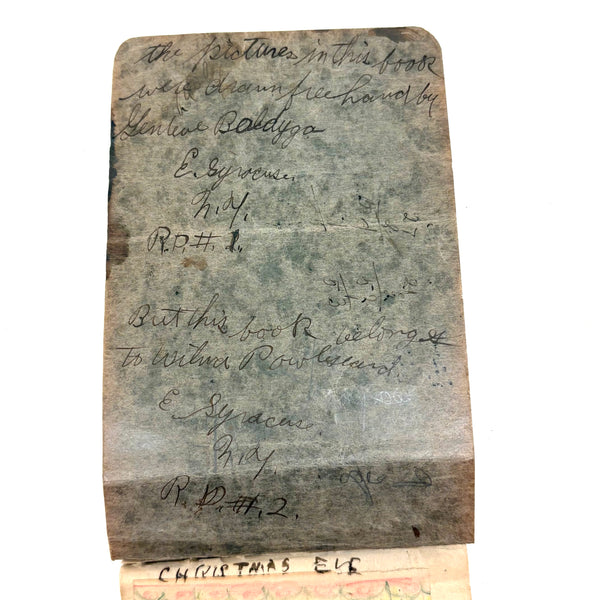 the pictures in this book
were drawn free hand by
Genlive Baldyga
E. Syracuse.
N. Y.
R.D.#.1.
But this book belong
to Wilma
E. Syracuse.
N. Y.
R. D.#.2.
CHRISTMAS EVE